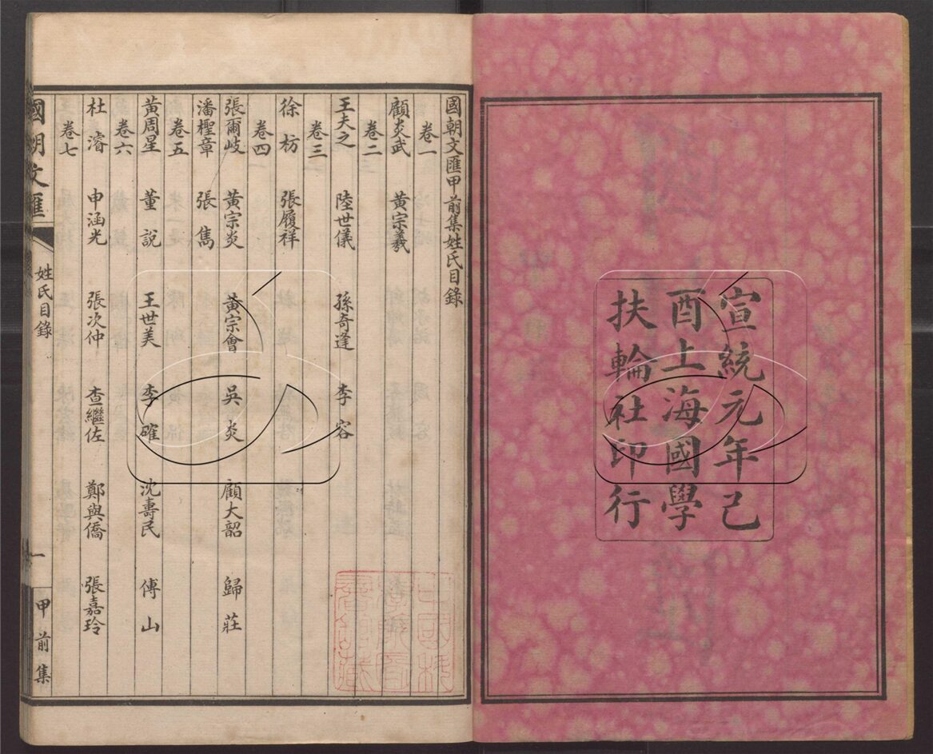 宣統元年己
酉上海國學
扶輪社印行
國朝文匯甲前集姓氏目錄
卷一
顧炎武 黃宗羲
卷二
王夫之 陸世儀 孫奇逢 李容
卷三
徐枋 張履祥
卷四
張爾岐 黃宗炎 黃宗會 吳炎 顧大韶 歸莊
潘檉章 張雋
卷五
黃周星 董說 王世美 李確 沈壽民 傅山
卷六
杜濬 申涵光 張次仲 查繼佐 鄭與僑 張嘉玲
卷七
國朝文匯 姓氏目錄 一 甲前集